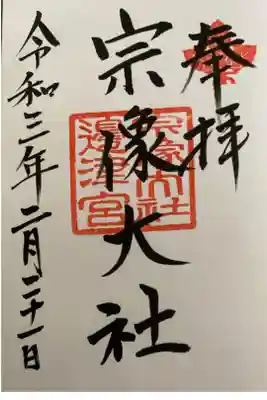 奉拝
宗像大社
宗像大社
邊津宮
令和三年二月二十一日